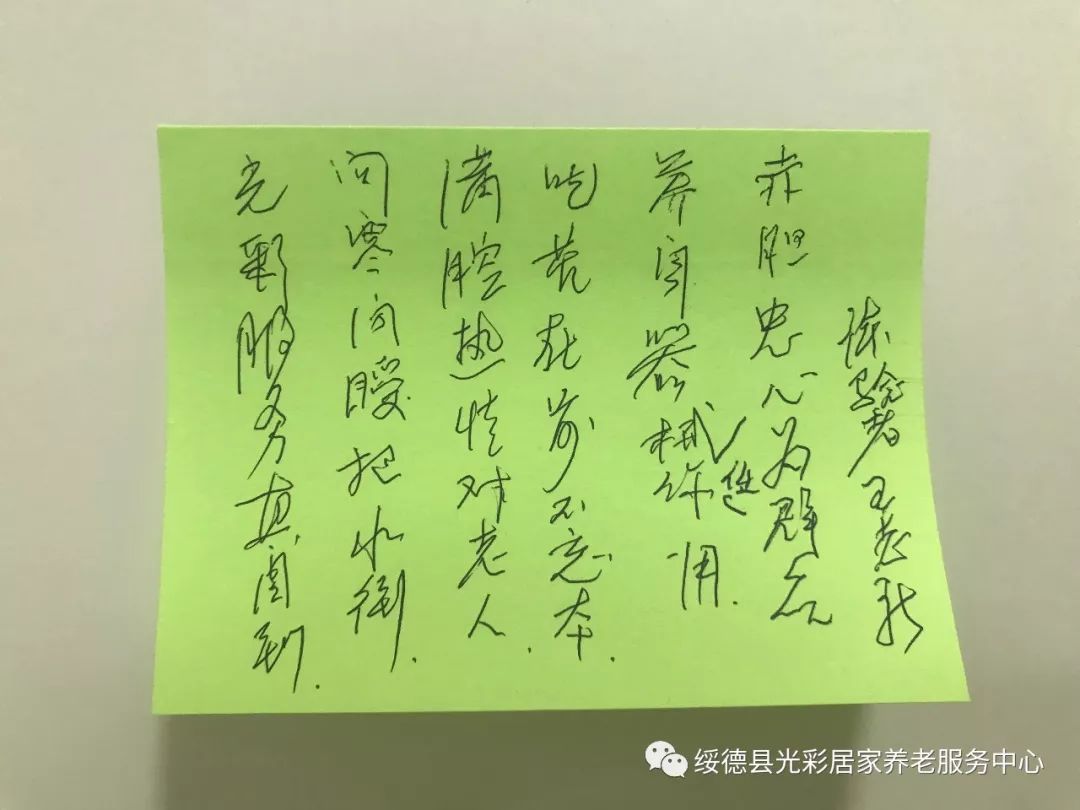 光彩服务真周到.
问寒问暖把水倒.
满腔热情对老人.
吃苦在前不忘本.
养器械用.
赤胆忠心为群众
体验者 王
绥德县光彩居家养老服务中心